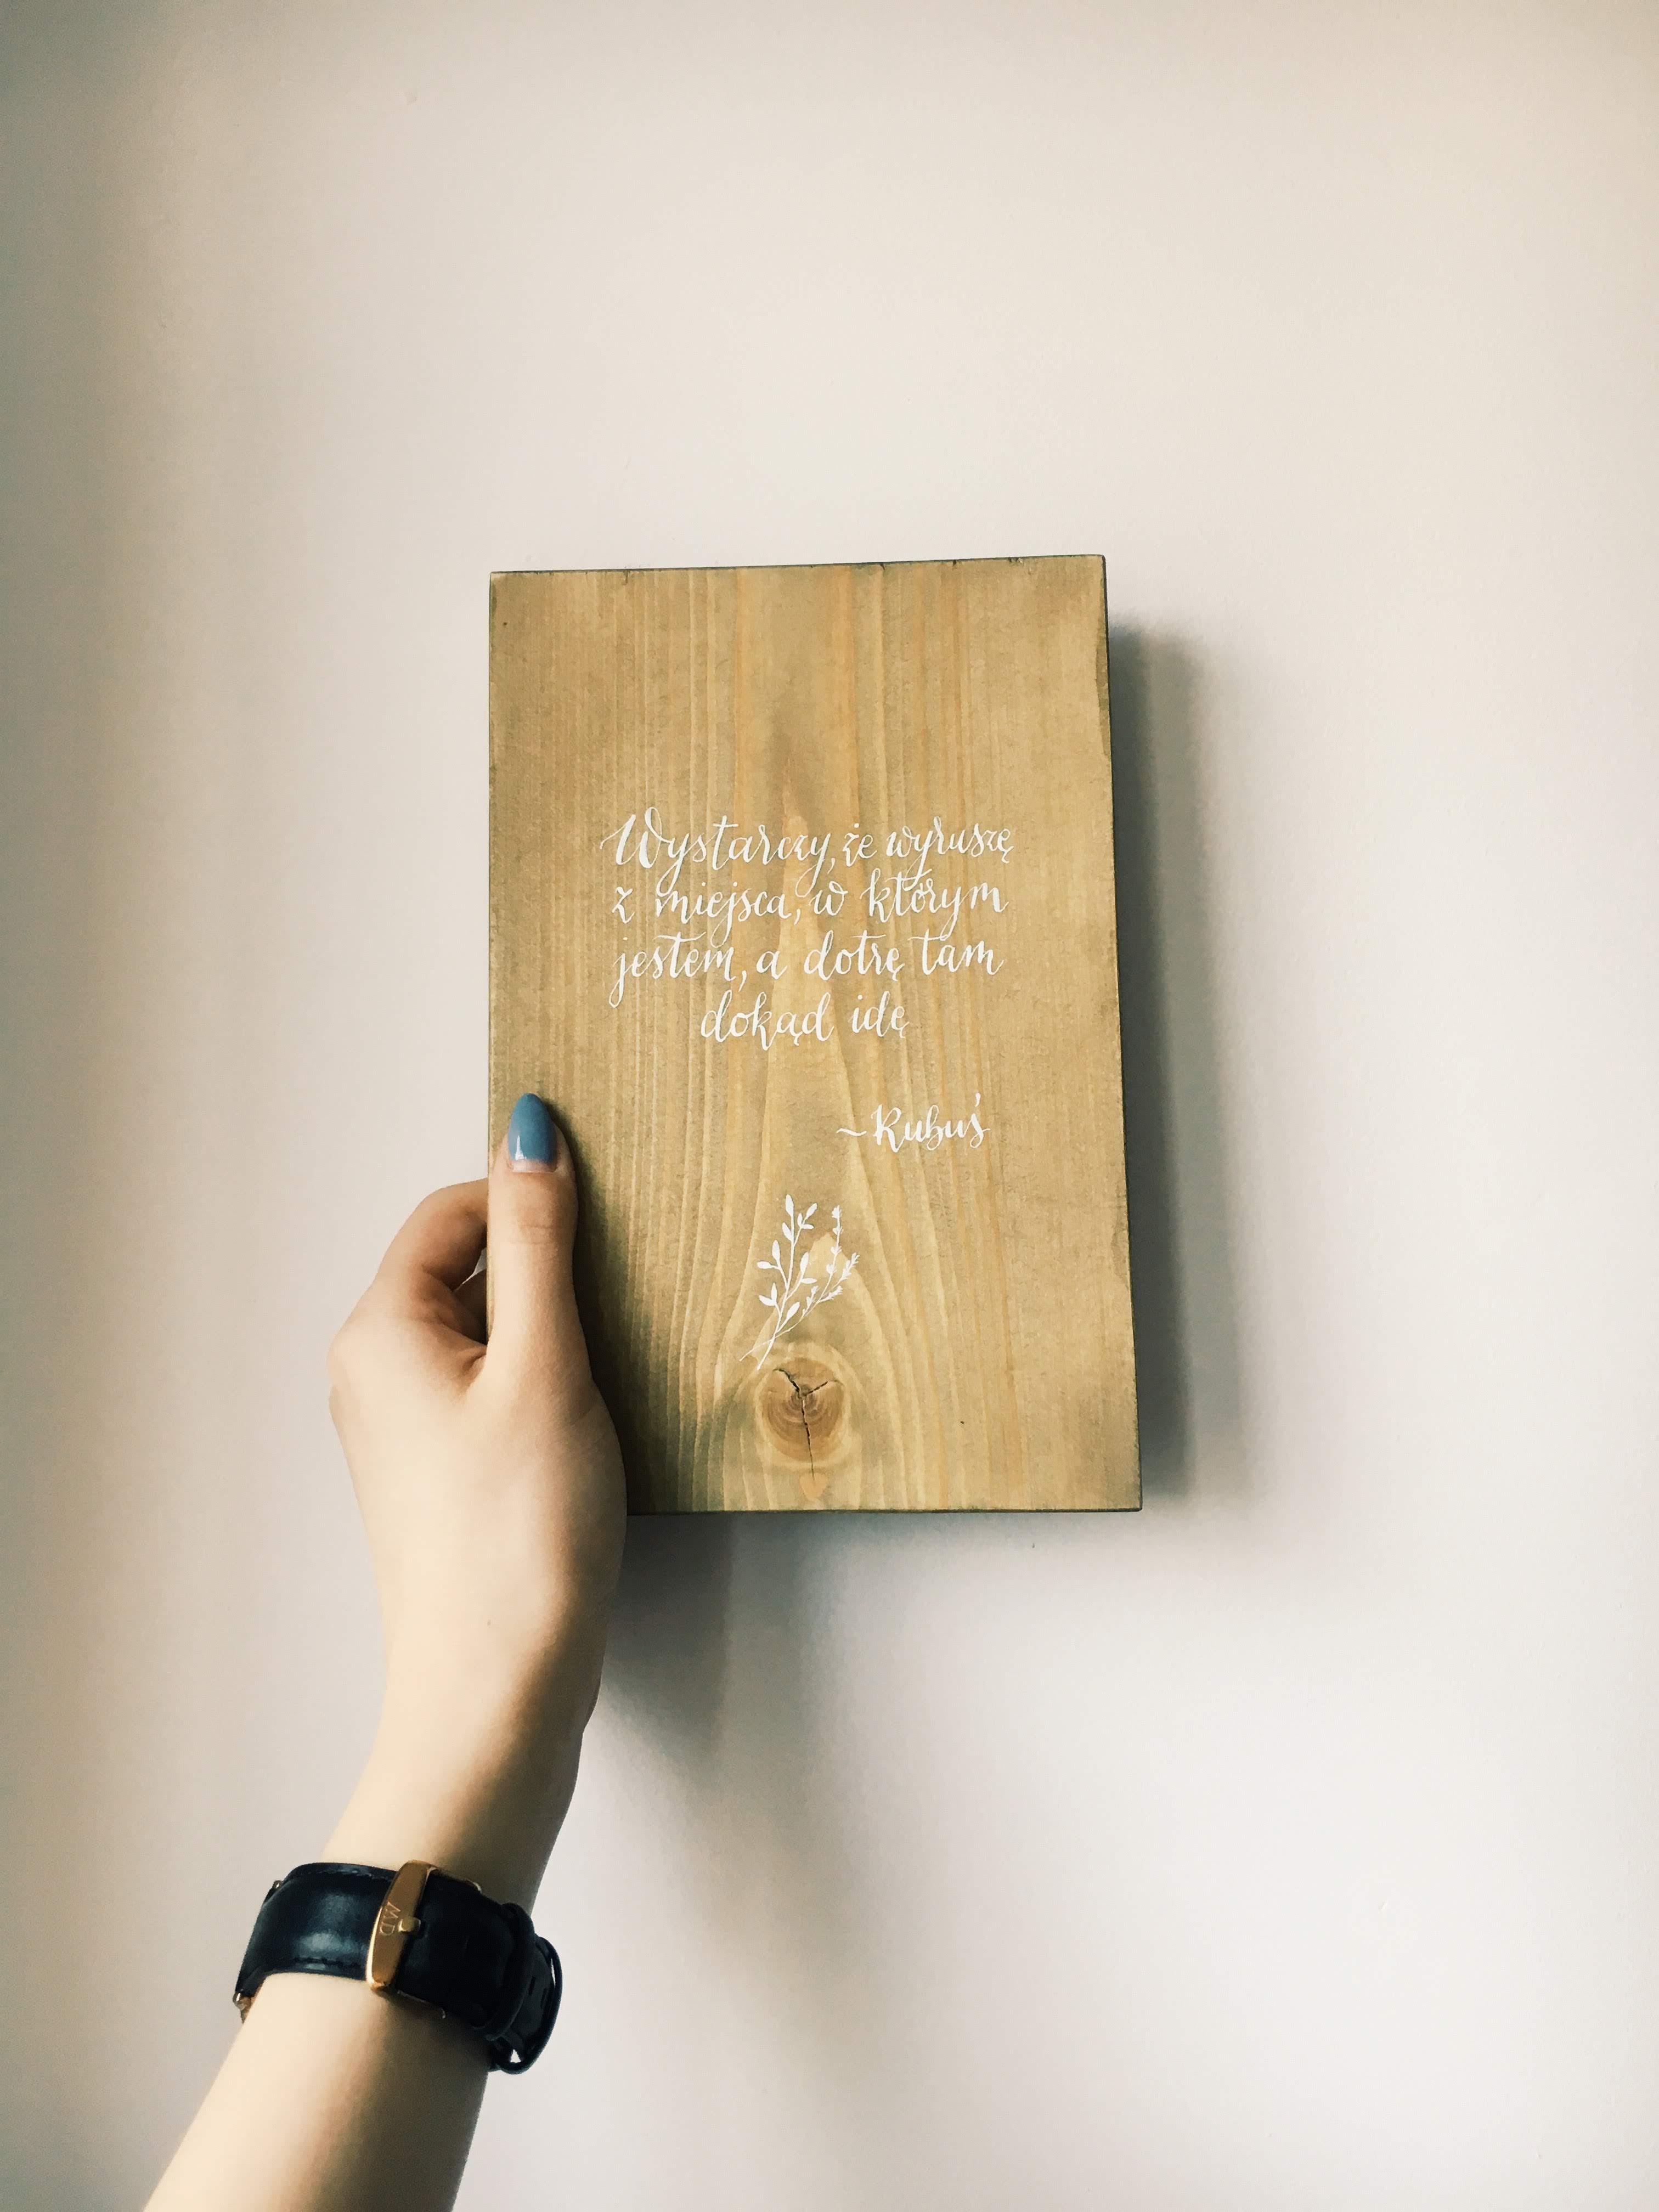 Wystarczy, że wyruszę
z miejsca, w którym
jestem, a dotrę tam
dokąd idę
~Kubuś
MD